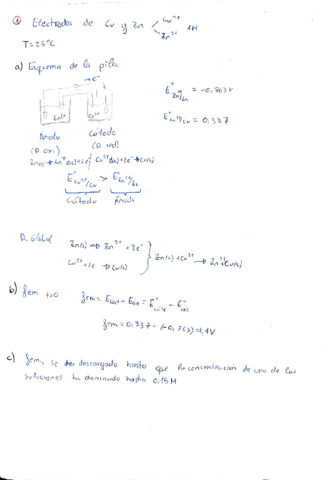 ① Electrodos de Cu y Zn < Cu²⁺ Zn²⁺ 1M
T=25ºC
a) Esquema de la pila
→ e⁻
E°Zn²⁺/Zn = -0,763V
E°Cu²⁺/Cu = 0,337
Zn²⁺
Ánodo Cátodo
(R oxi) (R red)
Zn(s)→Zn²⁺(ac)+2e⁻ Cu²⁺(ac)+2e⁻→Cu(s)
E°Cu²⁺/Cu > E°Zn²⁺/Zn
Cátodo Ánodo
R. Global
Zn(s) → Zn²⁺ + 2e⁻
Cu²⁺ + 2e⁻ → Cu(s)
Zn(s) + Cu²⁺ → Zn²⁺ + Cu(s)
b) fem t=0 fem = Ecat - Ean = E°Cu²⁺/Cu - E°
fem = 0,337 - (-0,763) = 1,1V
c) fem, se descargado hasta que la concentración de una de las
soluciones ha disminuido hasta 0,15M